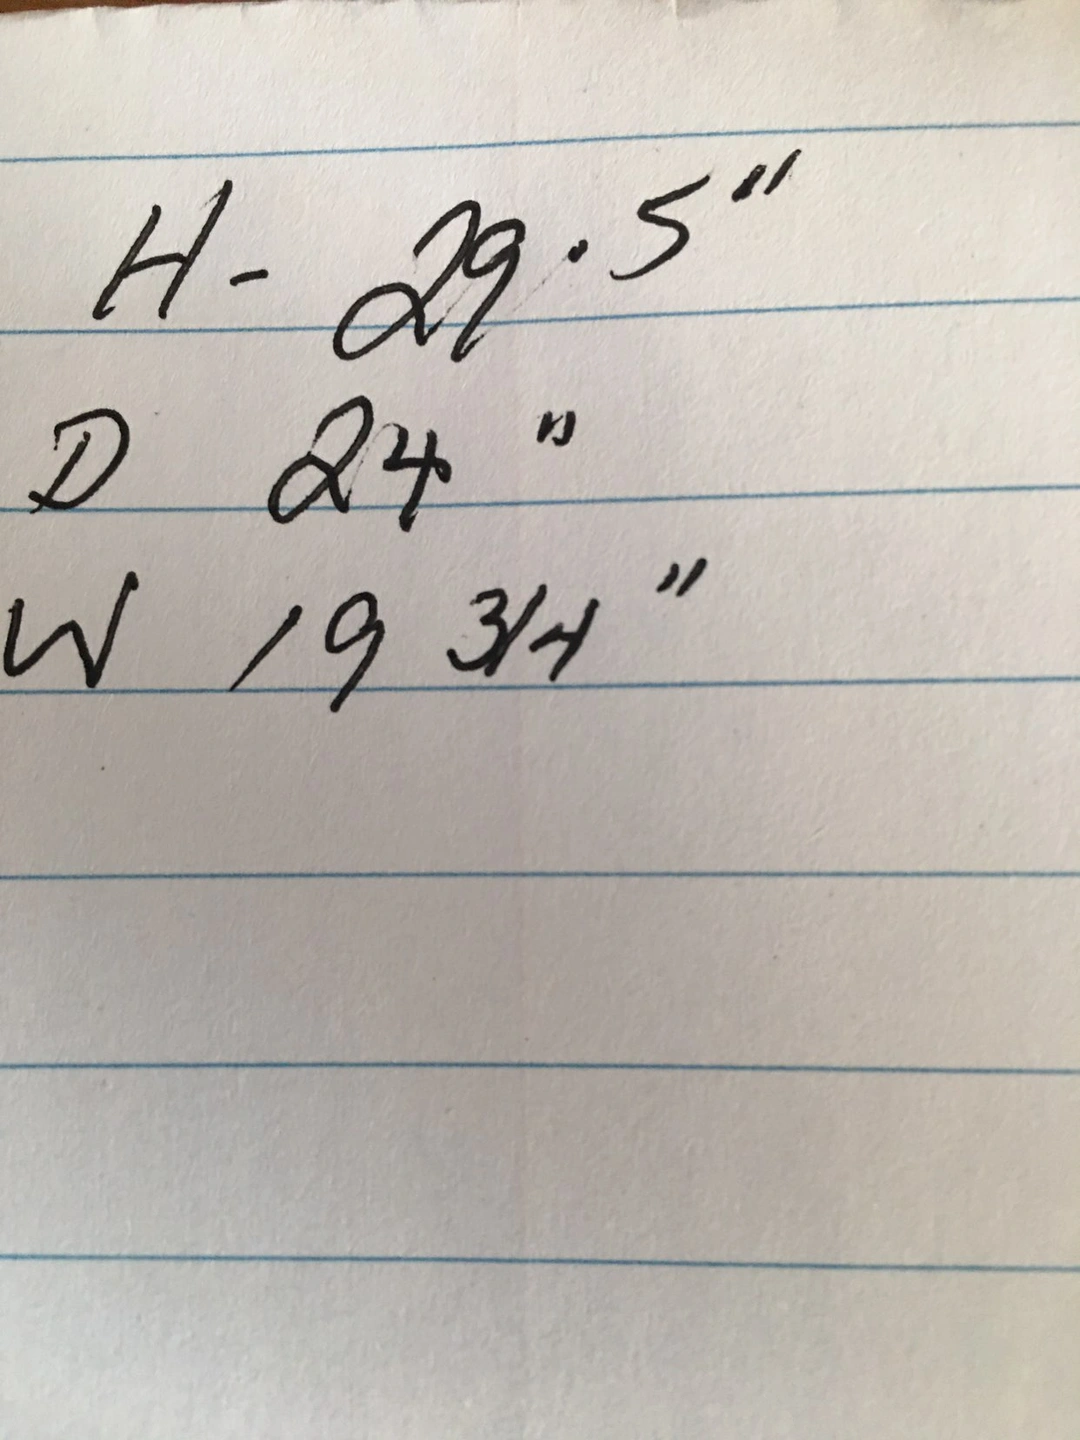 H- 29.5"
D 24"
W 19 3/4"